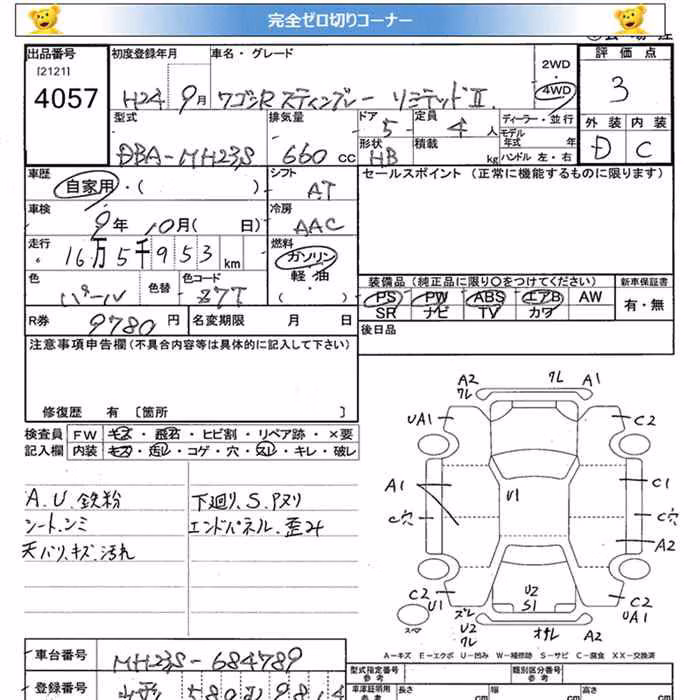 完全ゼロ切りコーナー
出品番号
[2121]
4057
初度登録年月
H24 9月
車名・グレード
ワゴンR スティングレー リミテッドⅡ
2WD
4WD
評価点
3
外装 内装
D C
型式
DBA-MH23S
排気量
660 cc
ドア 5
形状 HB
定員 4 人
積載 kg
ディーラー・並行
モデル年式 年
ハンドル 左・右
車歴
自家用・( )
シフト
AT
セールスポイント (正常に機能するものに限ります)
車検
9年 10月( 日)
冷房
AAC
走行
16万5千953 km
燃料
ガソリン
軽・油
・( )
色
パール
色替
色コード
Z7T
装備品 (純正品に限り○をつけてください)
PS PW ABS エアB AW
SR ナビ TV カワ
新車保証書
有・無
R券 9780 円
名変期限 月 日
後日品
注意事項申告欄(不具合内容等は具体的に記入して下さい)
修復歴 有 〔箇所 〕
検査員
記入欄
FW キズ・飛石・ヒビ割・リペア跡・×要
内装 キズ・汚レ・コゲ・穴・スレ・キレ・破レ
A.U.鉄粉
シート.シミ
天バリ.キズ.汚れ
下廻り.S.Pヌリ
エンドパネル.歪み
A2
ワレ
ワレ
A1
UA1
C2
A1
U1
C1
C穴
C穴
A2
C2
U1
U2
S1
C2
UA1
スマ
ズレ
U2
ワレ
オサレ
A2
A-キズ E-エクボ U-凹み W-補修跡 S-サビ C-腐食 XX-交換済
車台番号
MH23S-684789
登録番号
580
型式指定番号
参考
類別区分番号
参考
車庫証明用
参考
長さ cm
幅 cm
高さ cm